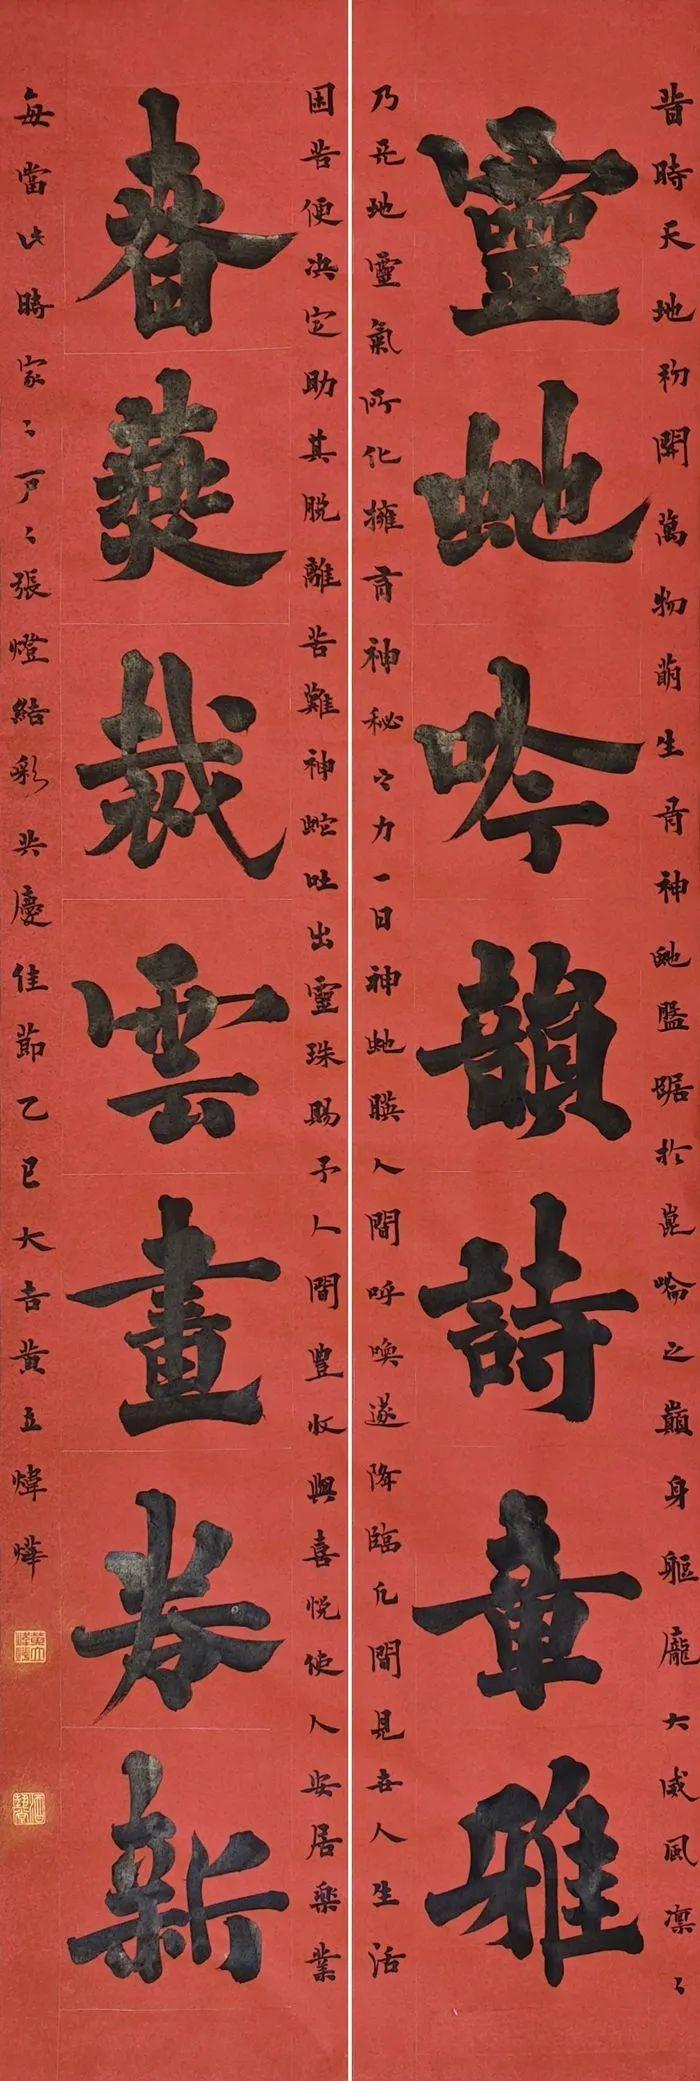 昔時天地初開萬物萌生有神虵盤踞於崑崙之巔身軀龐大威風凜〻
靈虵吟韻詩章雅
乃天地靈氣所化擁有神秘之力一日神虵人間呼喚遂降臨凡間見世人生活
困苦便决定助其脱離苦難神蛇吐出靈珠賜予人間豐收與喜悦使人安居樂業
春燕裁雲畫卷新
每當此時家〻户〻張燈結彩共慶佳節乙巳大吉黄立煒燁